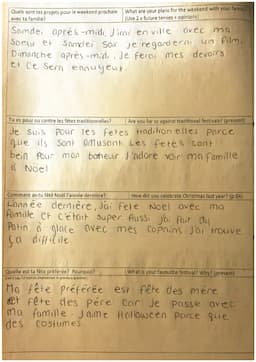 Quels sont tes projets pour le weekend prochain avec ta famille?
What are your plans for the weekend with your family
(Use 2 x future tenses + opinions)
Samdei après-midi, J'irai en ville avec ma
Soeur et Samdei Soir je regarderai un film.
Dimanche après-midi, Je ferai mes devoirs
et ce Sera ennuyeux.
Tu es pour ou contre les fêtes traditionelles?
Are you for or against traditional festivals? (present)
Je Suis Pour les fetes tradition elles Parce
que ils Sont amusant. Les fetes Sont
bein Pour mon boneur J'adore voir ma famille
à Noel
Comment as-tu fêté Noël l'année dernière?
How did you celebrate Christmas last year?
L'année dernière, J'ai fété Noel avec ma
famille et C'était super Aussi J'ai fair du
Patin à glace avec mes copains. J'ai trouve
ça difficile.
Quelle est ta fête préférée? Pourquoi?
What is your favourite festival? Why? (present)
Ma fête Préférée est fête des mère
et fête des Pére car Je Passe avec
Ma famille. J'aime Halloween Parce que
des costumes